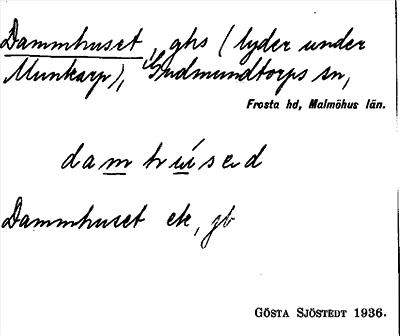 Dammhuset, ghs (lyder under
Munkarp), i Gudmundtorps sn,
Frosta hd, Malmöhus län.
damhúsed
Dammhuset ek, jb
GÖSTA SJÖSTEDT 1936.